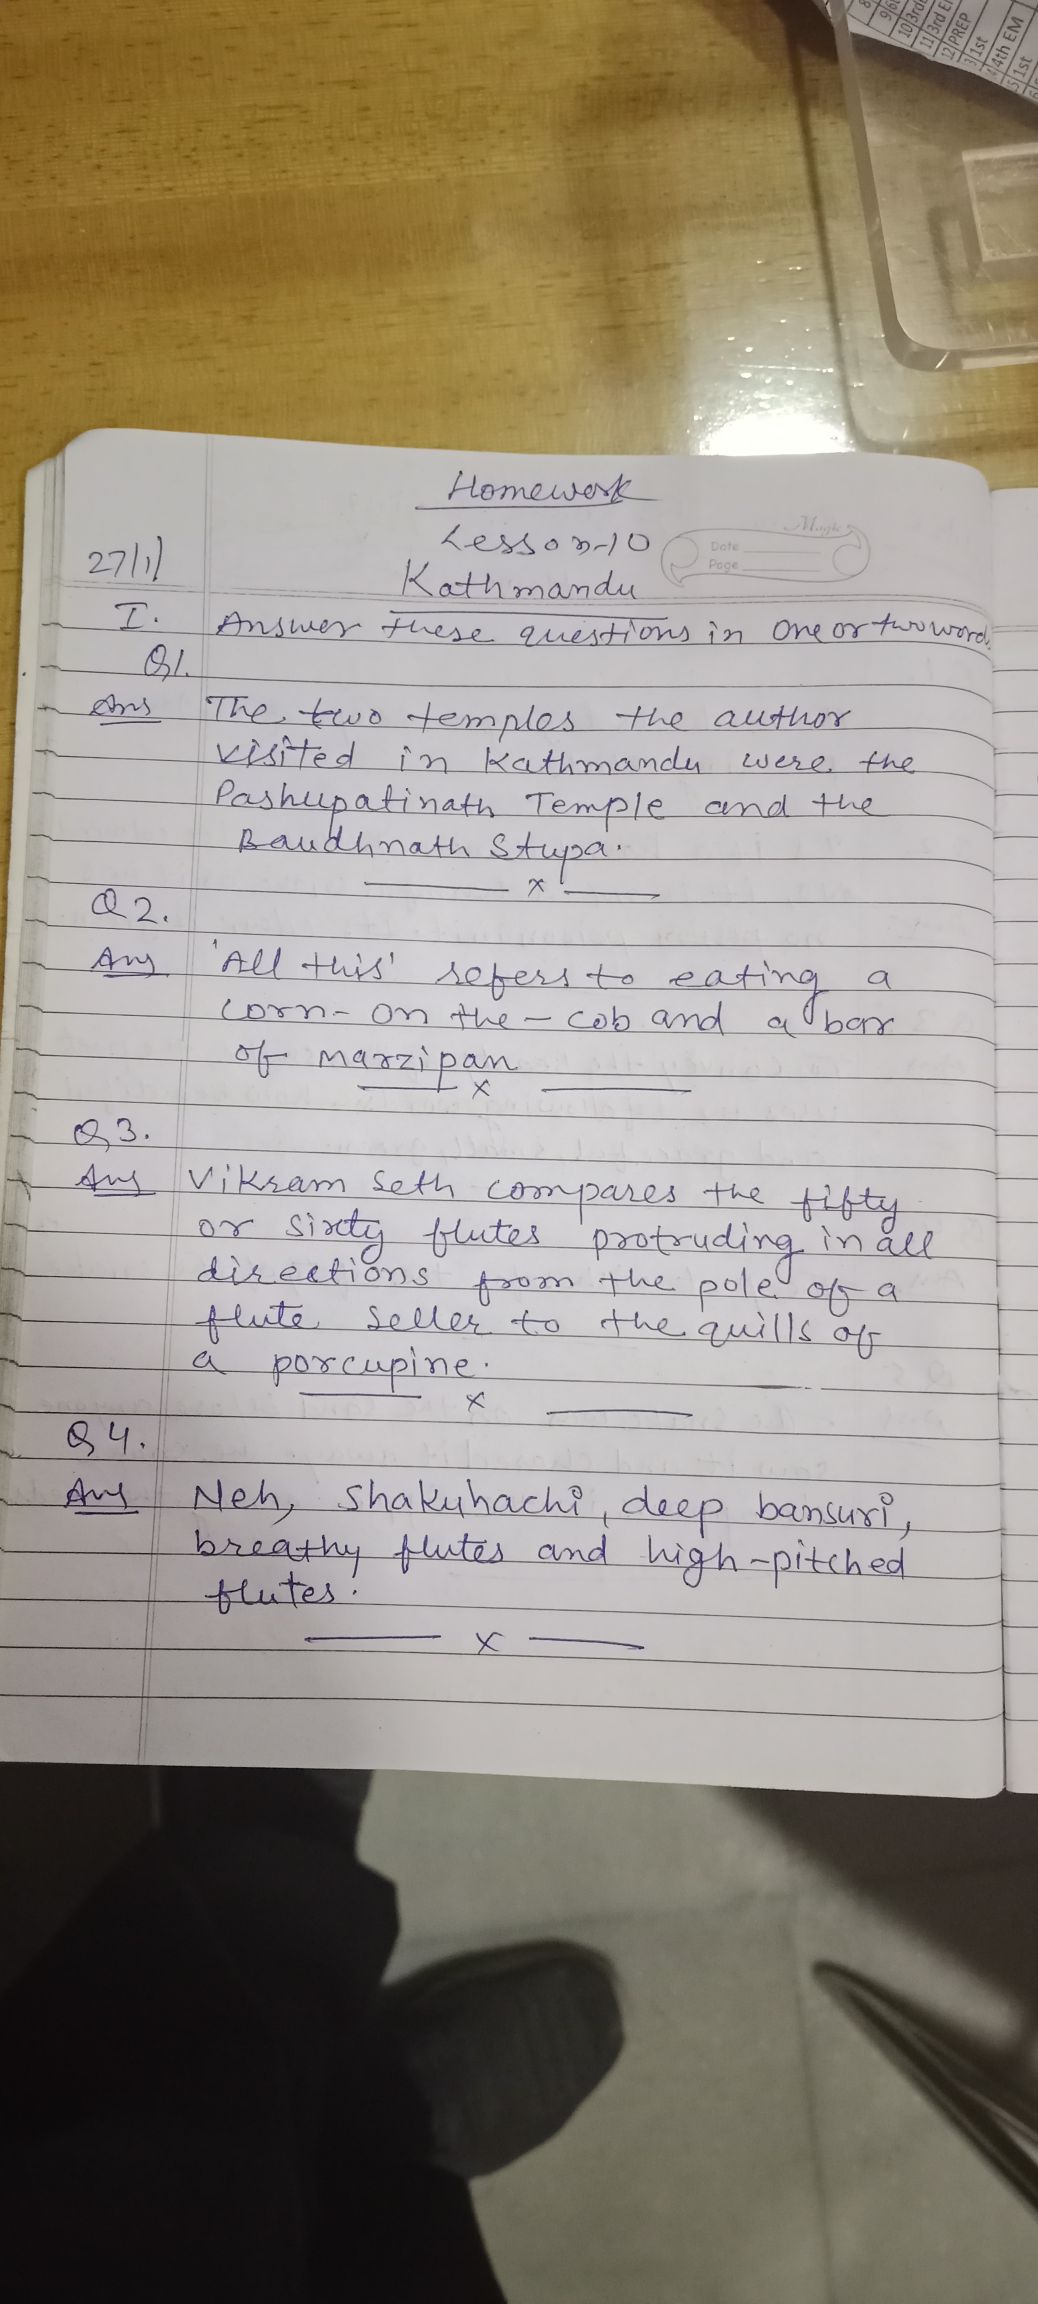 8
9
10 3rd
11 3rd E
12 PREP
3 1st
4 4th EM
5 1st
Homework
Lesson-10
Magic
Date
Page
27/1/
Kathmandu
I. Answer these questions in one or two word.
Q1.
Ans The two temples the author
visited in Kathmandu were the
Pashupatinath Temple and the
Baudhnath Stupa.
x
Q2.
Ans 'All this' refers to eating a
corn-on the-cob and a bar
of marzipan
x
Q3.
Ans Vikram Seth compares the fifty
or sixty flutes protruding in all
directions from the pole of a
flute seller to the quills of
a porcupine.
x
Q4.
Ans Neh, shakuhachi, deep bansuri,
breathy flutes and high-pitched
flutes.
x